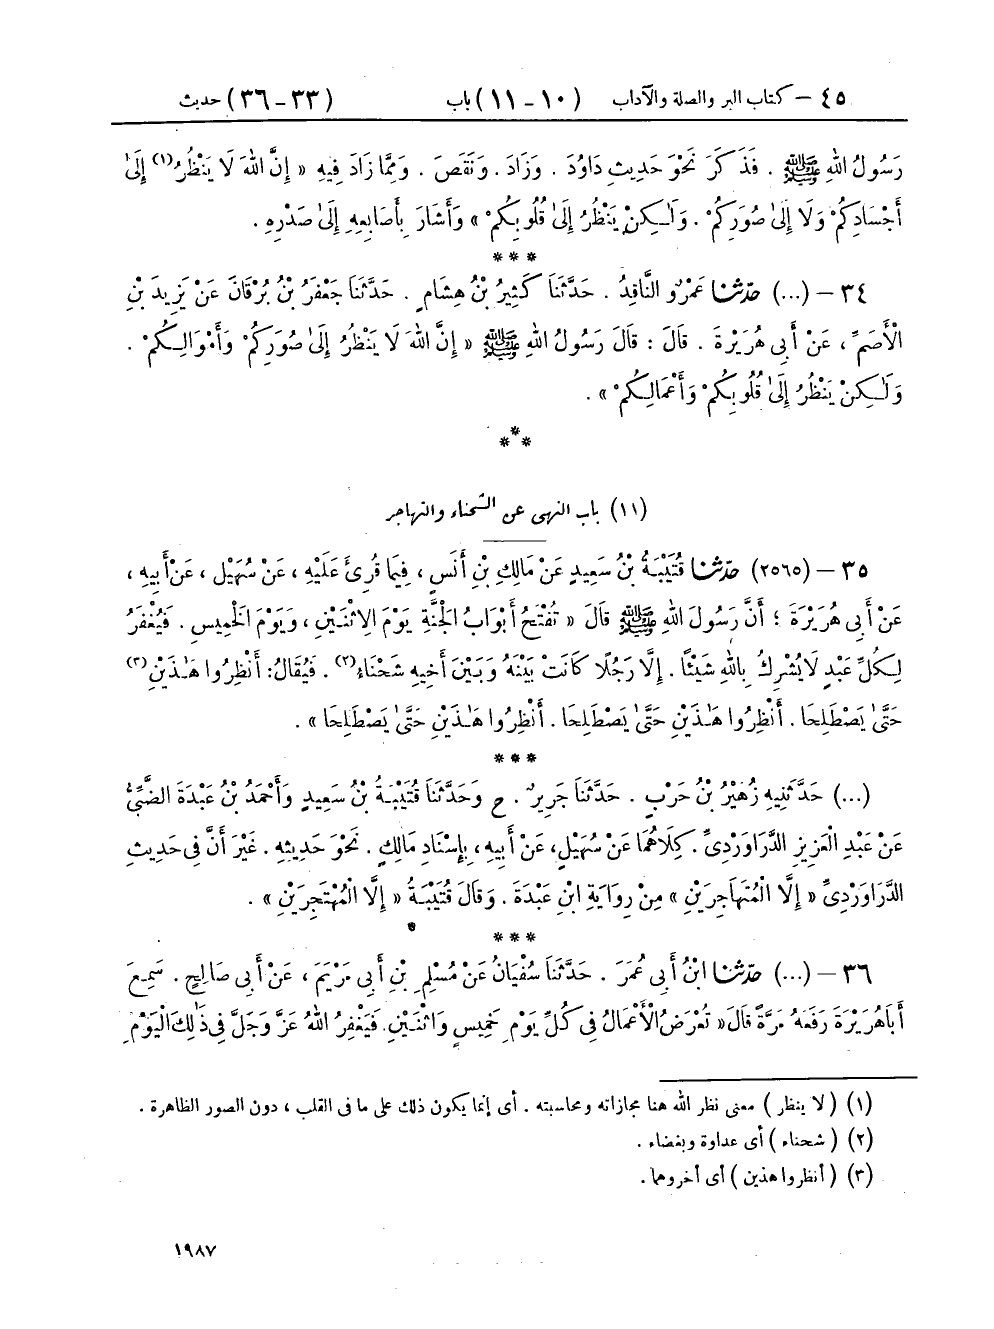 ٤٥ – كتاب البر والصلة والآداب (١٠ – ١١) باب (٣٣ – ٣٦) حديث
رَسُولُ اللهِ ﷺ . فَذَكَرَ نَحْوَ حَدِيثِ دَاوُدَ . وَزَادَ . وَنَقَصَ . وَمِمَّا زَادَ فِيهِ « إِنَّ اللهَ لَا يَنْظُرُ(١) إِلَىٰ
أَجْسَادِكُمْ وَلَا إِلَىٰ صُوَرِكُمْ . وَلَـٰكِنْ يَنْظُرُ إِلَىٰ قُلُوبِكُمْ » وَأَشَارَ بِأَصَابِعِهِ إِلَىٰ صَدْرِهِ .
* * *
٣٤ – (...) حَدَّثَنَا عَمْرٌو النَّاقِدُ . حَدَّثَنَا كَثِيرُ بْنُ هِشَامٍ . حَدَّثَنَا جَعْفَرُ بْنُ بُرْقَانَ عَنْ يَزِيدَ بْنِ
الْأَصَمِّ ، عَنْ أَبِى هُرَيْرَةَ . قَالَ : قَالَ رَسُولُ اللهِ ﷺ « إِنَّ اللهَ لَا يَنْظُرُ إِلَىٰ صُوَرِكُمْ وَأَمْوَالِكُمْ .
وَلَـٰكِنْ يَنْظُرُ إِلَىٰ قُلُوبِكُمْ وَأَعْمَالِكُمْ » .
* * *
(١١) باب النهى عن الشحناء والتهاجر
٣٥ – (٢٥٦٥) حَدَّثَنَا قُتَيْبَةُ بْنُ سَعِيدٍ عَنْ مَالِكِ بْنِ أَنَسٍ ، فِيمَا قُرِئَ عَلَيْهِ ، عَنْ سُهَيْلٍ ، عَنْ أَبِيهِ ،
عَنْ أَبِى هُرَيْرَةَ ؛ أَنَّ رَسُولَ اللهِ ﷺ قَالَ « تُفْتَحُ أَبْوَابُ الْجَنَّةِ يَوْمَ الِاثْنَيْنِ ، وَيَوْمَ الْخَمِيسِ . فَيُغْفَرُ
لِكُلِّ عَبْدٍ لَا يُشْرِكُ بِاللهِ شَيْئًا . إِلَّا رَجُلًا كَانَتْ بَيْنَهُ وَبَيْنَ أَخِيهِ شَحْنَاءُ(٢) . فَيُقَالُ : أَنْظِرُوا هَـٰذَيْنِ(٣)
حَتَّىٰ يَصْطَلِحَا . أَنْظِرُوا هَـٰذَيْنِ حَتَّىٰ يَصْطَلِحَا . أَنْظِرُوا هَـٰذَيْنِ حَتَّىٰ يَصْطَلِحَا » .
* * *
(...) حَدَّثَنِيهِ زُهَيْرُ بْنُ حَرْبٍ . حَدَّثَنَا جَرِيرٌ . ح وَحَدَّثَنَا قُتَيْبَةُ بْنُ سَعِيدٍ وَأَحْمَدُ بْنُ عَبْدَةَ الضَّبِّىُّ
عَنْ عَبْدِ الْعَزِيزِ الدَّرَاوَرْدِىِّ . كِلَاهُمَا عَنْ سُهَيْلٍ ، عَنْ أَبِيهِ ، بِإِسْنَادِ مَالِكٍ . نَحْوَ حَدِيثِهِ . غَيْرَ أَنَّ فِى حَدِيثِ
الدَّرَاوَرْدِىِّ « إِلَّا الْمُتَهَاجِرَيْنِ » مِنْ رِوَايَةِ ابْنِ عَبْدَةَ . وَقَالَ قُتَيْبَةُ « إِلَّا الْمُهْتَجِرَيْنِ » .
* * *
٣٦ – (...) حَدَّثَنَا ابْنُ أَبِى عُمَرَ . حَدَّثَنَا سُفْيَانُ عَنْ مُسْلِمِ بْنِ أَبِى مَرْيَمَ ، عَنْ أَبِى صَالِحٍ . سَمِعَ
أَبَا هُرَيْرَةَ رَفَعَهُ مَرَّةً قَالَ « تُعْرَضُ الْأَعْمَالُ فِى كُلِّ يَوْمِ خَمِيسٍ وَاثْنَيْنِ . فَيَغْفِرُ اللهُ عَزَّ وَجَلَّ فِى ذَٰلِكَ الْيَوْمِ
(١) ( لا ينظر ) معنى نظر الله هنا مجازاته ومحاسبته . أى إنما يكون ذلك على ما فى القلب ، دون الصور الظاهرة .
(٢) ( شحناء ) أى عداوة وبغضاء .
(٣) ( أنظروا هذين ) أى أخروهما .
١٩٨٧